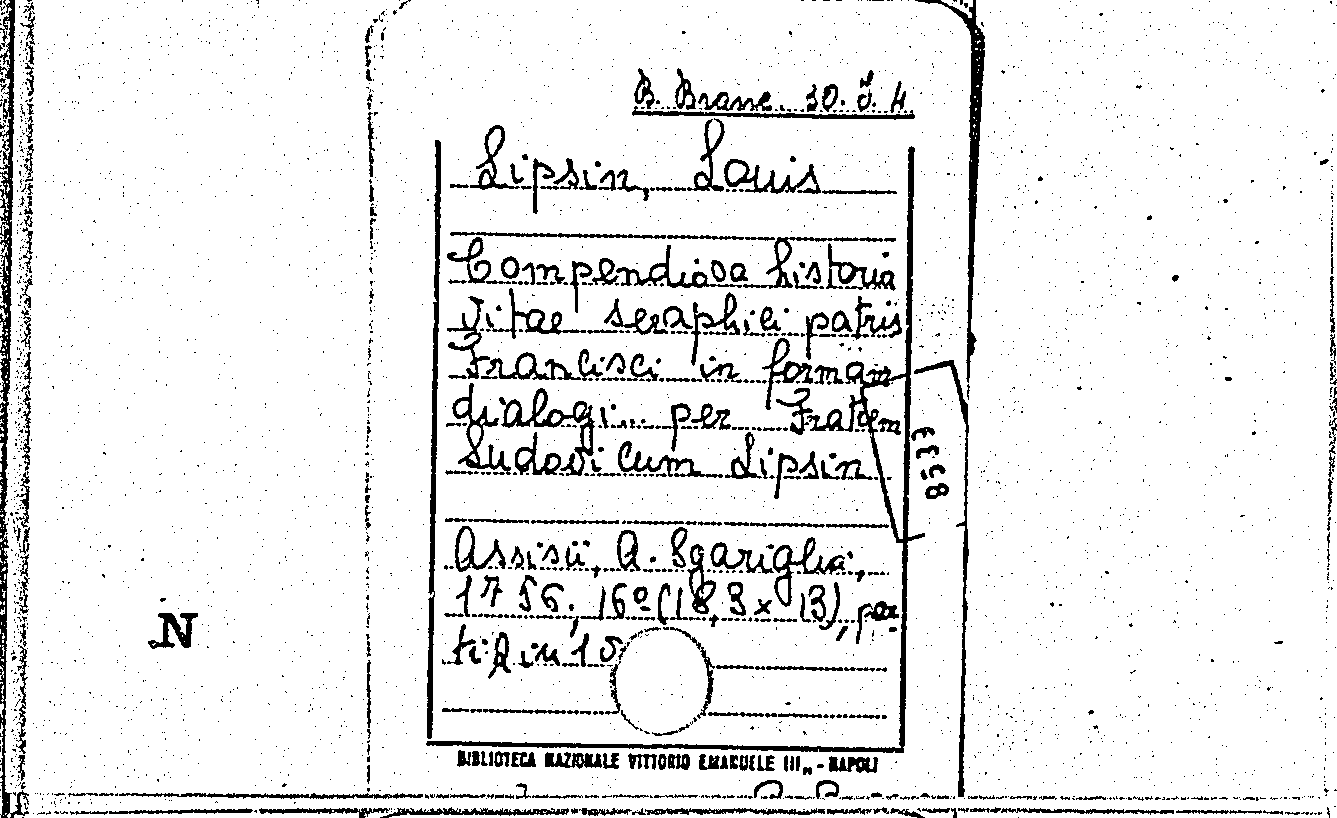 B. Branc. 30. J. 4
Lipsin, Louis
Compendiosa historia
vitae seraphici patris
Francisci in formam
dialogi... per Fratrem
Ludovicum Lipsin
8533
Assisii, A. Sgariglia,
1756, 16º (18,3 x 13), par
ti 2 in 1
N
BIBLIOTECA NAZIONALE VITTORIO EMANUELE III„ - NAPOLI